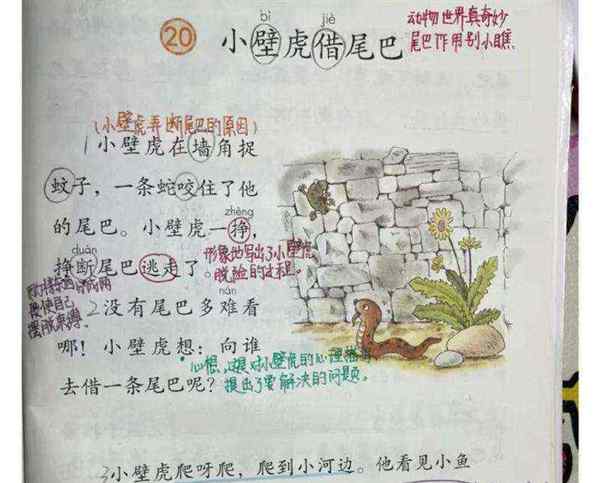 bì jiè
20 小壁虎借尾巴
动物世界真奇妙
尾巴作用别小瞧.
(小壁虎弄断尾巴的原因)
1小壁虎在墙角捉
蚊子，一条蛇咬住了他
zhèng
的尾巴。小壁虎一挣，
duàn
挣断尾巴逃走了。
形象地写出了小壁虎
脱险的过程。
nán
2没有尾巴多难看
哪！小壁虎想：向谁
去借一条尾巴呢？
心想，这是对小壁虎的心理描写
提出了要解决的问题。
使自己
摆脱束缚
3小壁虎爬呀爬，爬到小河边。他看见小鱼